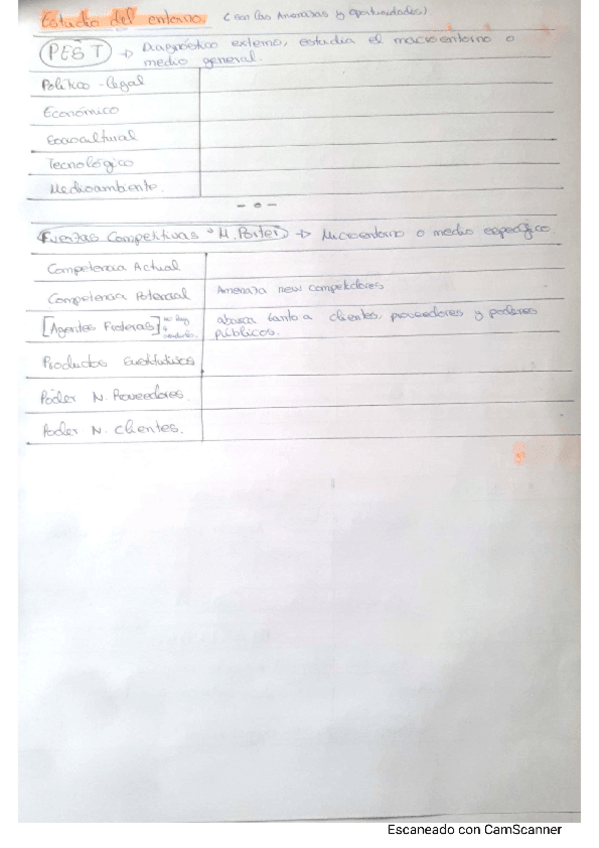 Estudio del entorno. (son las Amenazas y oportunidades)
PEST → Diagnóstico externo, estudia el macroentorno o
medio general.
Político-legal
Económico
Sociocultural
Tecnológico
Medioambiente.
- o -
Fuerzas Competitivas "M. Porter" → Microentorno o medio específico.
Competencia Actual
Competencia Potencial Amenaza new competidores
[Agentes Fronteras] no hay abarca tanto a clientes, proveedores y poderes
públicos.
Productos Sustitutivos
Poder N. Proveedores.
Poder N. Clientes.
Escaneado con CamScanner